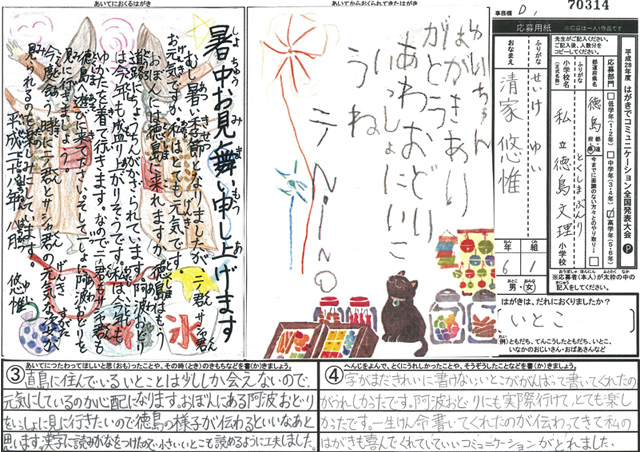 あいてにおくるはがき
暑中お見舞い申し上げます
しょちゅうみまもう
ニノ君 サシャ君
むし暑い季節になりましたが
お元気ですか。私はとても元気です。
おぼんには徳島に来れますか。徳島はもう
氷
平成二十八年 八月
悠惟
あいてからおくられてきたはがき
ゆいちゃん
はがきあり
がとう
あわおどり
いっしょにいこ
うね
ニノ NINO
事務欄 D,
70314
応募用紙
※応募は一人1作品です
先生がご記入ください。
ご記入後、人数分を
コピーしてください。
平成28年度 はがきでコミュニケーション全国発表大会 P
おなまえ
ふりがな
せいけ ゆい
清家 悠惟
応募部門
低学年(1・2年)
中学年(3・4年)
高学年(5・6年)
今までに面識のない方々とのやり取り
都道府県名
徳島 都道府県
小学校名
(正式名称)
ふりがな
とくしまぶんり
私立徳島文理 小学校
ねん
年
くみ
組
6
1
男・女
※応募者(本人)が太枠の中の
記入をしてください。
はがきは、だれにおくりましたか?
いとこ
(例)ともだち、てんこうしたともだち、いとこ、
いなかのおじいさん・おばあさんなど
あいてにつたわってほしいと思(おも)ったことや、その時(とき)のきもちなどを書(か)きましょう。
③ 直島に住んでいるいとことは少ししか会えないので、
元気にしているのか心配になります。おぼんにある阿波おどり
をいっしょに見に行きたいので徳島の様子が伝わるといいなあと
思います。漢字に読みがなをつけたので小さいいとこも読めるように工夫しました。
へんじをよんで、とくにうれしかったことや、そうぞうしたことなどを書(か)きましょう。
④ 字がまだきれいに書けないいとこががんばって書いてくれたの
がうれしかったです。阿波おどりにも実際行けて、とても楽し
かったです。一生けん命書いてくれたのが伝わってきて私の
はがきも喜んでくれていていいコミュニケーションがとれました。